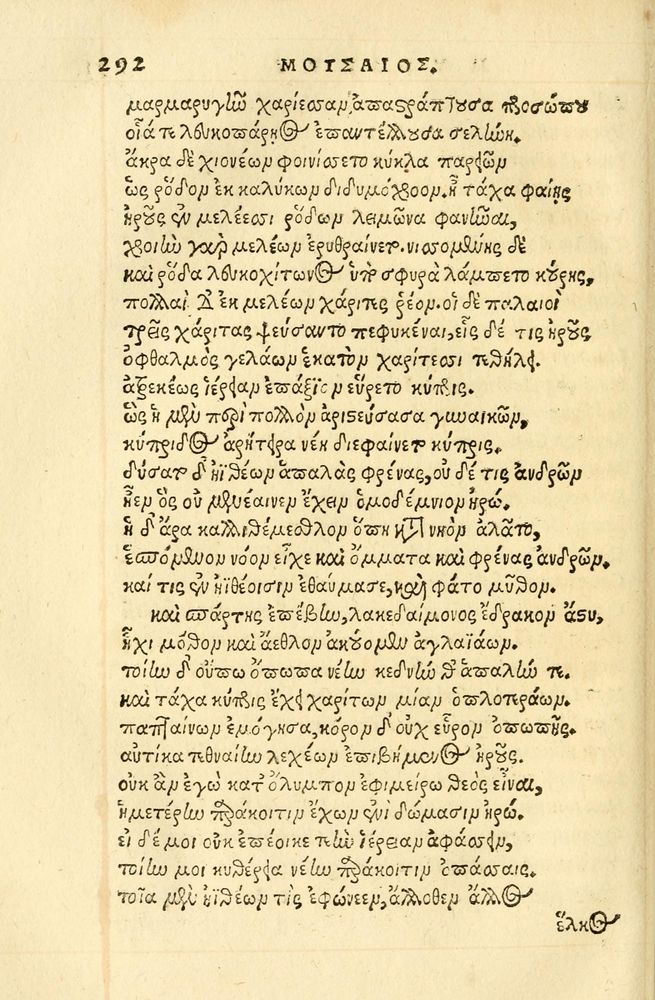 292 ΜΟΥΣΑΙΟΣ.
μαρμαρυγὴν χαρίεσσαν ἀπαστράπτουσα προσώπου
οἷά τε λευκοπάρηος ἐπαντέλλουσα σελήνη.
ἄκρα δὲ χιονέων φοινίσσετο κύκλα παρειῶν
ὡς ῥόδον ἐκ καλύκων διδυμόχροον. ἦ τάχα φαίης
ἡροῦς ἐν μελέεσσι ῥόδων λειμῶνα φανῆναι,
χροιὴν γὰρ μελέων ἐρυθραίνετο. νισσομένης δὲ
καὶ ῥόδα λευκοχίτωνος ὑπὸ σφυρὰ λάμπετο κούρης,
πολλαὶ δ' ἐκ μελέων χάριτες ῥέον. οἱ δὲ παλαιοὶ
τρεῖς χάριτας ψεύσαντο πεφυκέναι, εἷς δέ τις ἡροῦς
ὀφθαλμὸς γελάων ἑκατὸν χαρίτεσσι τεθήλει.
ἀτρεκέως ἱέρειαν ἐπάξιον εὕρετο κύπρις.
ὣς ἡ μὲν περὶ πολλὸν ἀριστεύσασα γυναικῶν,
κύπριδος ἀρήτειρα νέη διεφαίνετο κύπρις.
δύσατο δ' ἠϊθέων ἁπαλὰς φρένας, οὐδέ τις ἀνδρῶν
ἦεν ὃς οὐ μενέαινεν ἔχειν ὁμοδέμνιον ἡρώ.
ἡ δ' ἄρα καλλιθέμεθλον ὅπη κατὰ νηὸν ἀλᾶτο,
ἑσπόμενον νόον εἶχε καὶ ὄμματα καὶ φρένας ἀνδρῶν.
καί τις ἐν ἠϊθέοισιν ἐθαύμασε, καὶ φάτο μῦθον.
καὶ σπάρτης ἐπέβην, λακεδαίμονος ἔδρακον ἄστυ,
ἧχι μόθον καὶ ἄεθλον ἀκούομεν ἀγλαϊάων.
τοίην δ' οὔπω ὄπωπα νέην κεδνήν θ' ἁπαλήν τε.
καὶ τάχα κύπρις ἔχει χαρίτων μίαν ὁπλοτεράων.
παπταίνων ἐμόγησα, κόρον δ' οὐχ εὗρον ὀπωπῆς.
αὐτίκα τεθναίην λεχέων ἐπιβήμενος ἡροῦς.
οὐκ ἂν ἐγὼ κατ' ὄλυμπον ἐφιμείρω θεὸς εἶναι,
ἡμετέρην παράκοιτιν ἔχων ἐνὶ δώμασιν ἡρώ.
εἰ δέ μοι οὐκ ἐπέοικε τεὴν ἱέρειαν ἀφάσσειν,
τοίην μοι κυθέρεια νέην παράκοιτιν ὀπάσσαις.
τοῖα μὲν ἠϊθέων τὶς ἐφώνεεν, ἄλλοθεν ἄλλος
ἕλκος